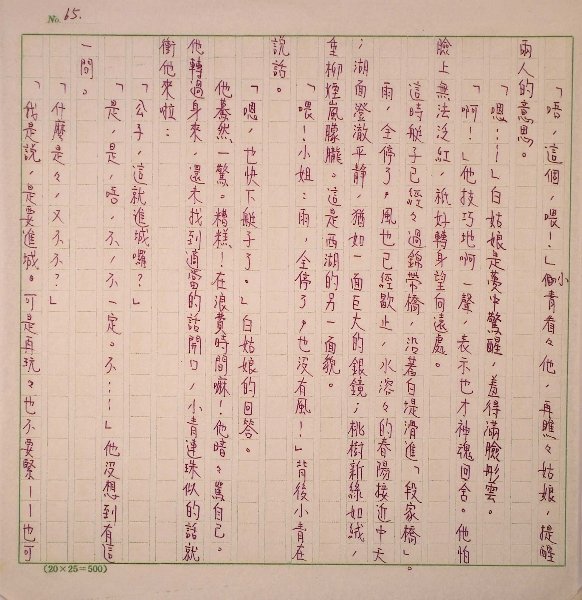 No. 65.
「唔，這個，喂！」小青看々他，再瞧々姑娘，提醒
兩人的意思。
「嗯……」白姑娘是夢中驚醒，羞得滿臉彤雲。
「啊！」他技巧地啊一聲，表示也才神魂回舍。他怕
臉上無法泛紅，祇好轉身望向遠處。
這時艇子已經々過錦帶橋，沿著白堤滑進「段家橋」。
雨，全停了，風也已經歇止，水溶々的春陽接近中天
；湖面澄澈平靜，猶如一面巨大的銀鏡；桃樹新綠如絨，
垂柳煙嵐朦朧。這是西湖的另一面貌。
「喂！小姐：雨，全停了，也沒有風！」背後小青在
說話。
「嗯，也快下艇子了。」白姑娘的回答。
他驀然一驚。糟糕！在浪費時間嘛！他暗々罵自己。
他轉過身來，還未找到適當的話開口，小青連珠似的話就
衝他來啦：
「公子，這就進城囉？」
「是，是，唔，不，不一定。不……」他沒想到有這
一問。
「什麼是々，又不不？」
「我是說，是要進城。可是再玩々也不要緊——也可
(20×25=500)